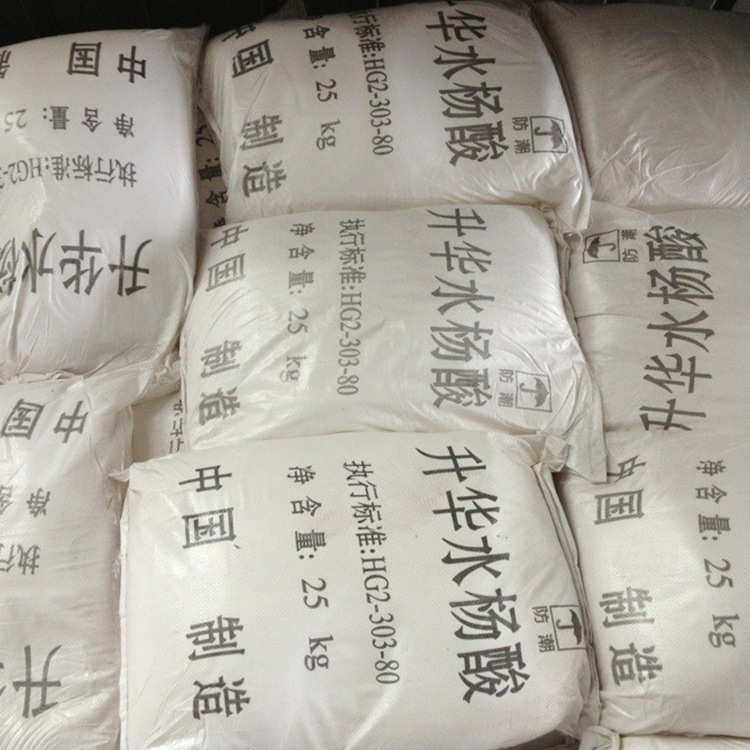 升华水杨
执行标准:HG2-3
净含量: 25
中国
华水杨酸
防潮
执行标准:HG2-303-80
含量: 25 kg
中国 制造
升华水杨酸
防潮
执行标准:HG2-303-80
净含量: 25 kg
中国 制造
升华水杨酸
防潮
升
执行
净含
中国
升华水杨酸
防潮
执行标准:HG2-303-80
净含量: 25 kg
中国 制造
净含量: 25 kg
中国 制造